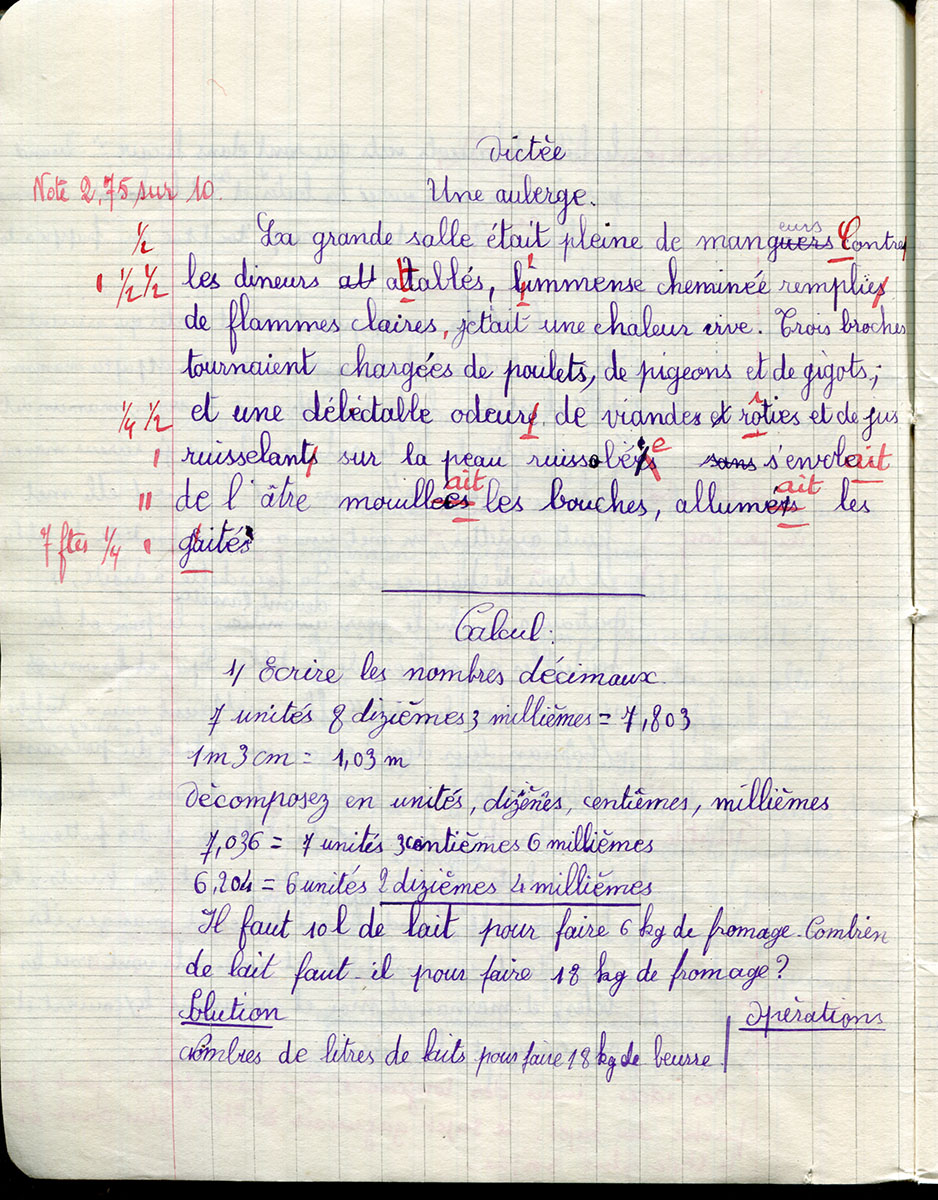 Dictée
Note 2,75 sur 10. Une auberge.
1/2 La grande salle était pleine de manguers eurs Contre
1 1/2 1/2 les dineurs att attablés, l'immense cheminée remplies
de flammes claires, jetait une chaleur vive. Trois broches
tournaient chargées de poulets, de pigeons et de gigots;
1/4 1/2 et une délectable odeur de viandes et rôties et de jus
1 ruisselants sur la peau ruissolée sans s'envolait
11 de l'âtre mouillées ait les bouches, allumés ait les
7 ftes 1/4 1 gaités
Calcul:
1/ Ecrire les nombres décimaux.
7 unités 8 dizièmes 3 millièmes = 7,803
1m 3cm = 1,03 m
Décomposez en unités, dizènes, centièmes, millièmes
7,036 = 7 unités 3centièmes 6 millièmes
6,204 = 6 unités 2 dizièmes 4 millièmes
Il faut 10 l de lait pour faire 6 kg de fromage. Combien
de lait faut-il pour faire 18 kg de fromage?
Solution Opérations
nombres de litres de laits pour faire 18 kg de beurre